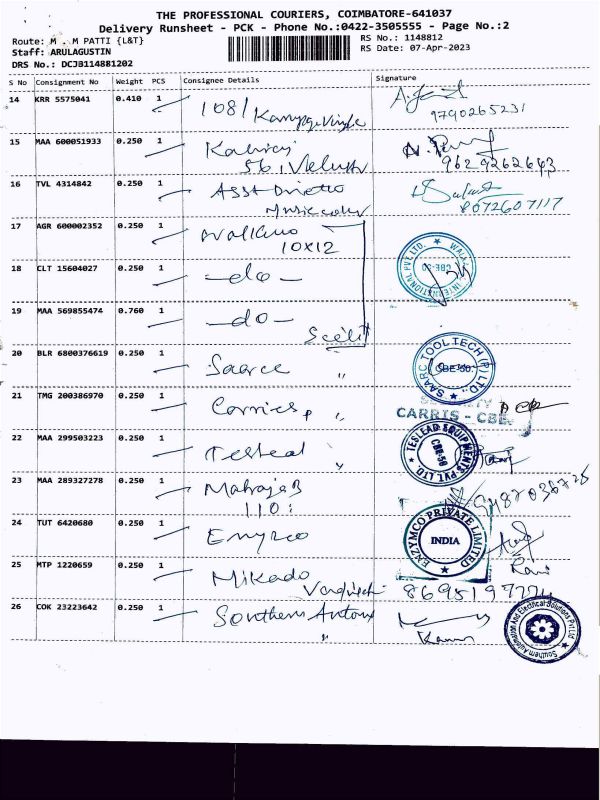 THE PROFESSIONAL COURIERS, COIMBATORE-641037
Delivery Runsheet - PCK - Phone No.:0422-3505555 - Page No.:2
Route: M . M PATTI {L&T}
RS No.: 1148812
Staff: ARULAGUSTIN
RS Date: 07-Apr-2023
DRS No.: DCJB114881202
S No Consignment No Weight PCS Consignee Details Signature
14 KRR 5575041 0.410 1 108/
9790265231
15 MAA 600051933 0.250 1
56,
9629262643
16 TVL 4314842 0.250 1 Asst Director
Music
8072607117
17 AGR 600002352 0.250 1
10x12
INTERNATIONAL PVT LTD.
18 CLT 15604027 0.250 1 -do-
19 MAA 569855474 0.760 1 -do-
20 BLR 6800376619 0.250 1 Saarc "
SAARC TOOL TECH (P) LTD.,
CBE-50
21 TMG 200386970 0.250 1 Carris "
CARRIS - CBE.
22 MAA 299503223 0.250 1 Teslead "
TESLEAD EQUIPMENTS PVT. LTD.
CBE-50
23 MAA 289327278 0.250 1
110
24 TUT 6420680 0.250 1
ENZYMCO PRIVATE LIMITED
INDIA
25 MTP 1220659 0.250 1 Mikado
Ravi
26 COK 23223642 0.250 1 Southern Autom
"
Southern Automation And Electrical Solutions Pvt Ltd